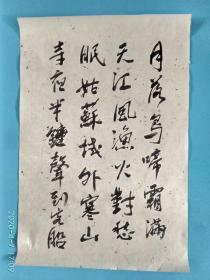 月落烏啼霜滿
天江風漁火對愁
眠姑蘇城外寒山
寺夜半鐘聲到客船